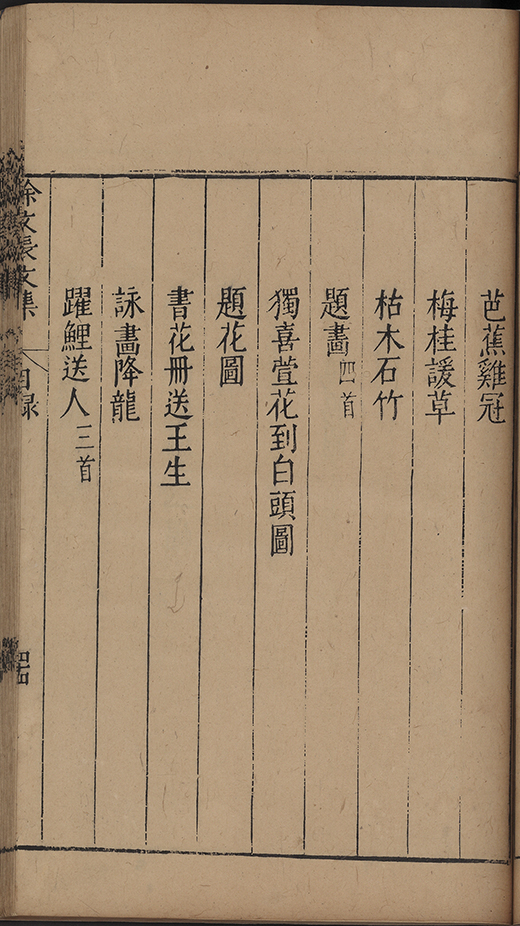 芭蕉雞冠
梅桂諼草
枯木石竹
題畵四首
獨喜萱花到白頭圖
題花圖
書花冊送王生
詠畵降龍
躍鯉送人三首
徐文長文集
目録